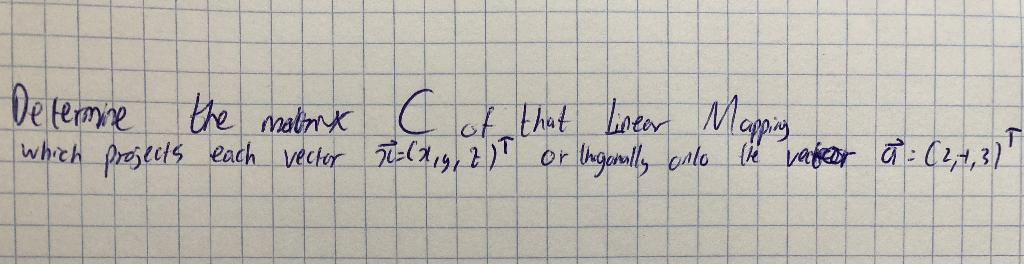 Determine the matrix C of that Linear Mapping
which projects each vector x⃗=(x,y,z)ᵀ orthogonally onto the vector a⃗=(2,-1,3)ᵀ